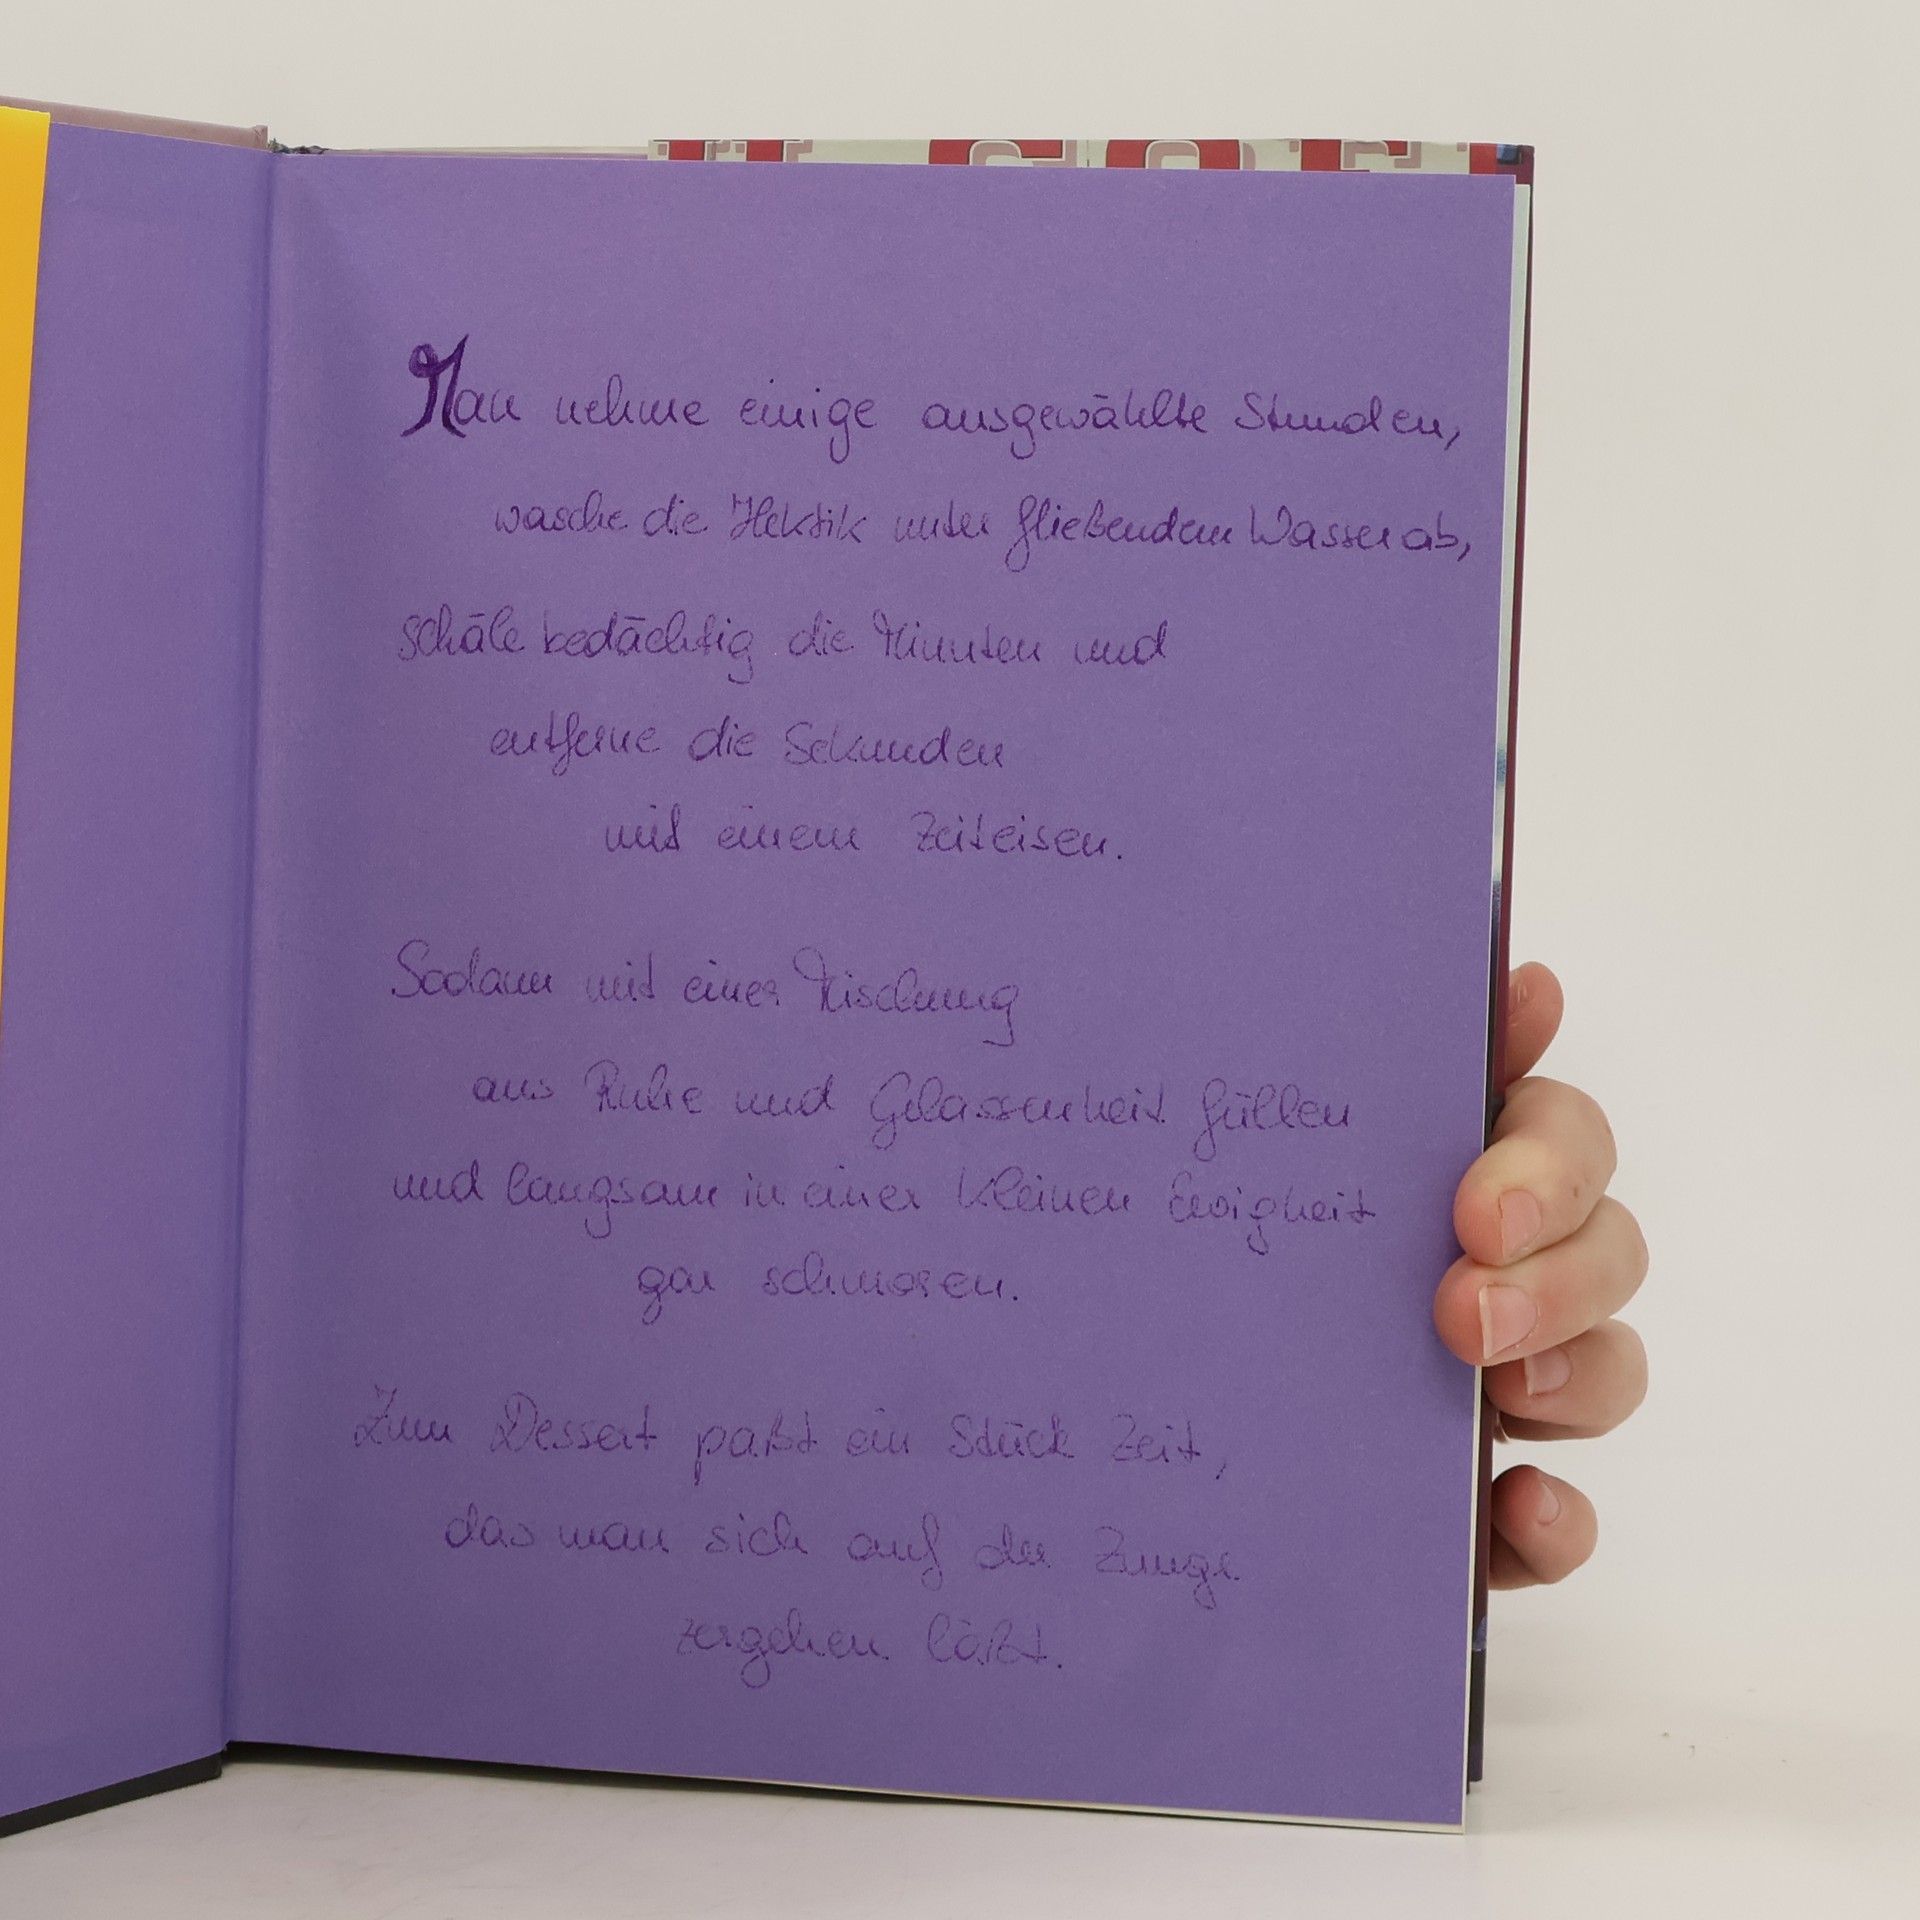 Man nehme einige ausgewählte Stunden,
wasche die Hektik unter fließendem Wasser ab,
schäle bedächtig die Minuten und
entferne die Sekunden
mit einem Zeiteisen.
Sodann mit einer Mischung
aus Ruhe und Gelassenheit füllen
und langsam in einer kleinen Ewigkeit
gar schmoren.
Zum Dessert paßt ein Stück Zeit,
das man sich auf der Zunge
zergehen läßt.